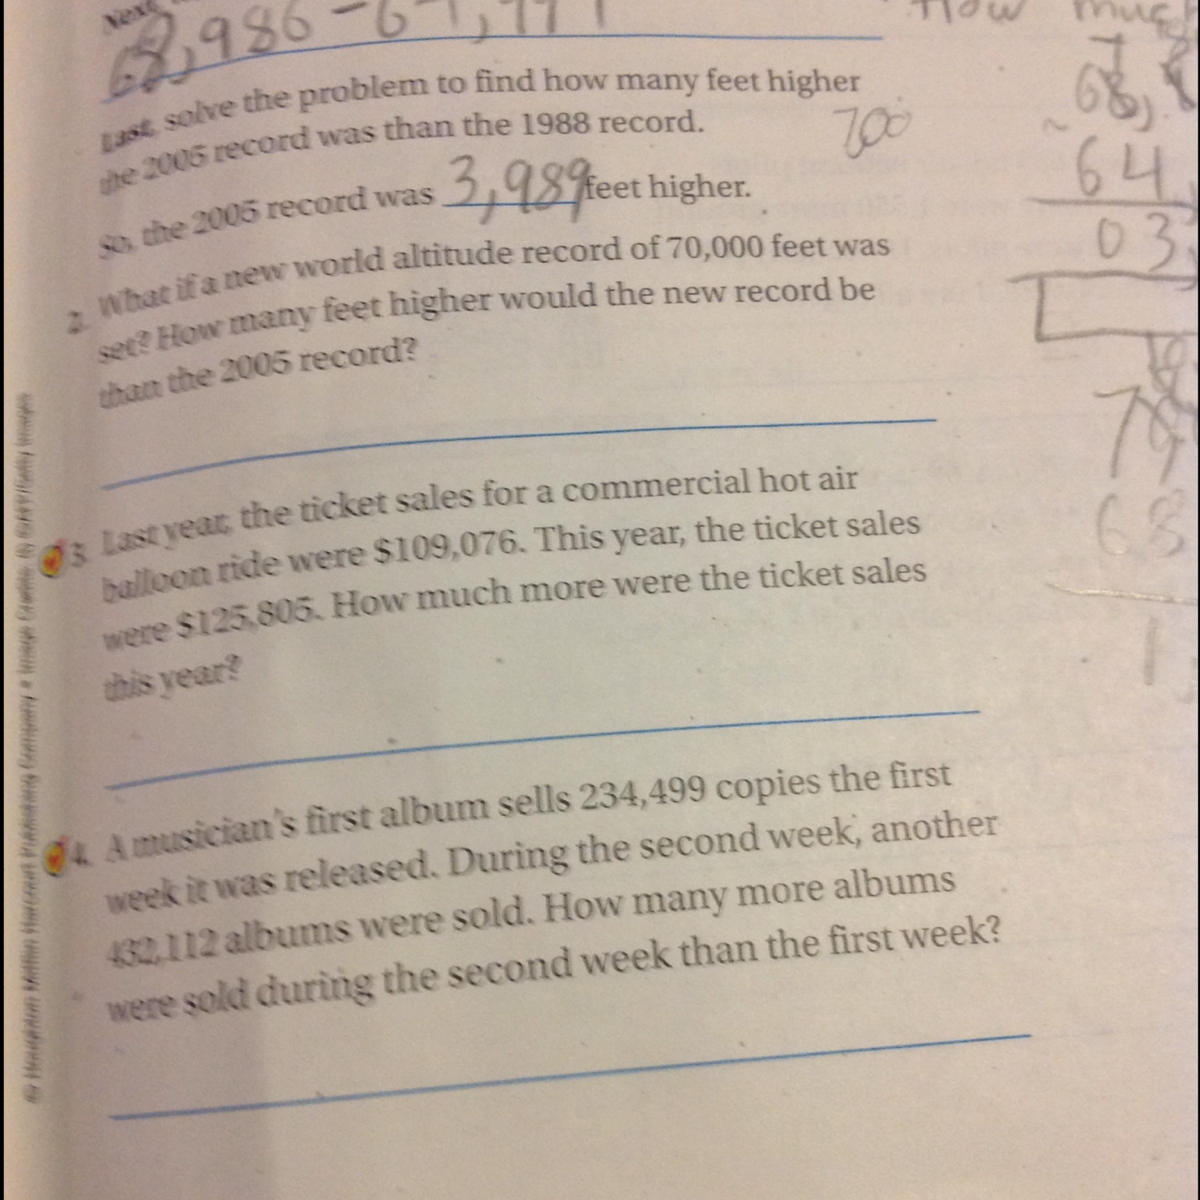 Next,
68,986 - 64,997
How much
Last, solve the problem to find how many feet higher
the 2005 record was than the 1988 record.
700
68,
64,
03,
So, the 2005 record was 3,989 feet higher.
2. What if a new world altitude record of 70,000 feet was
set? How many feet higher would the new record be
than the 2005 record?
79
68
1
3. Last year, the ticket sales for a commercial hot air
balloon ride were $109,076. This year, the ticket sales
were $125,805. How much more were the ticket sales
this year?
4. A musician's first album sells 234,499 copies the first
week it was released. During the second week, another
432,112 albums were sold. How many more albums
were sold during the second week than the first week?
© Houghton Mifflin Harcourt Publishing Company